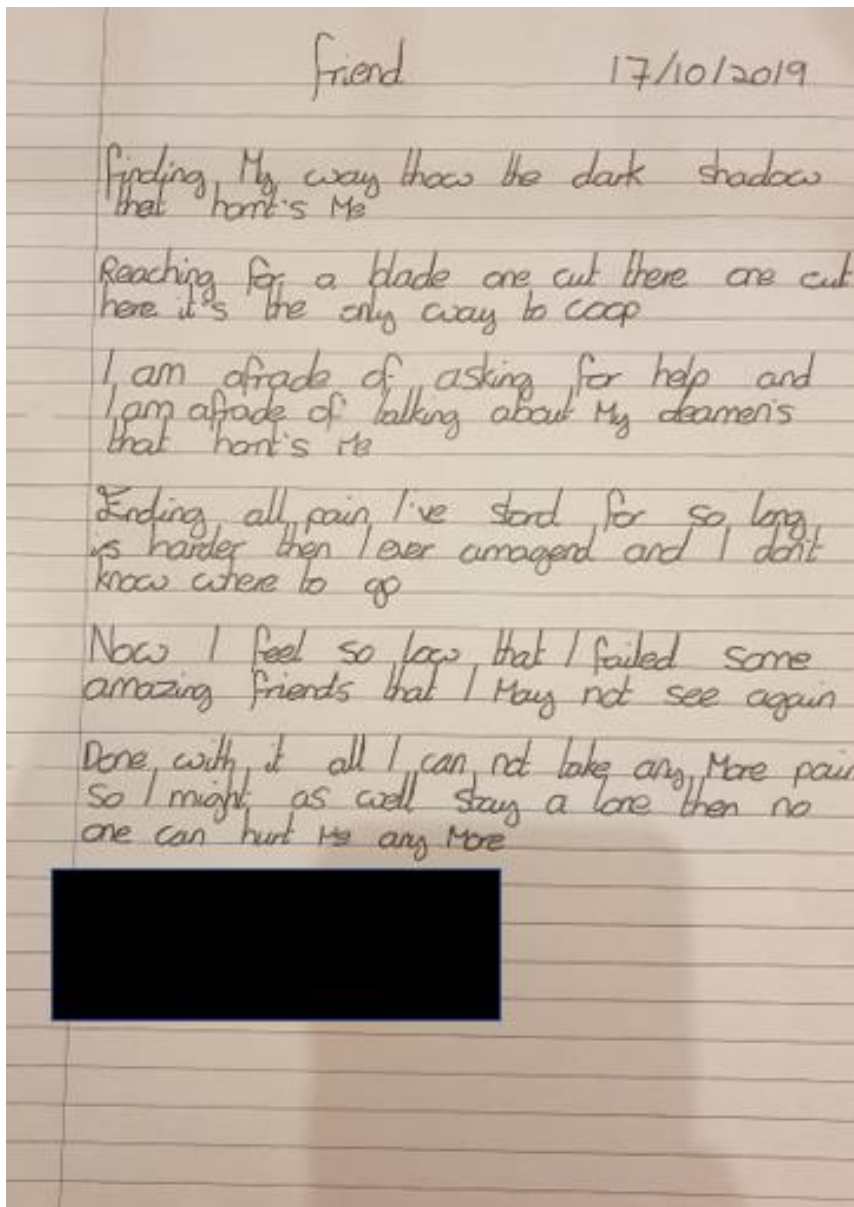 friend 17/10/2019
finding My way thow the dark shadow
that hornt's Me
Reaching for a blade one cut there one cut
here it's the only way to coop
I am afrade of asking for help and
I am afrade of talking about My deamen's
that hornt's Me
Ending all pain I've stord for so long
is harder then I ever amagend and I don't
know where to go
Now I feel so low that I failed some
amazing friends that I May not see again
Done with it all I can not take any More pain
so I might as well stay a lone then no
one can hurt Me any More